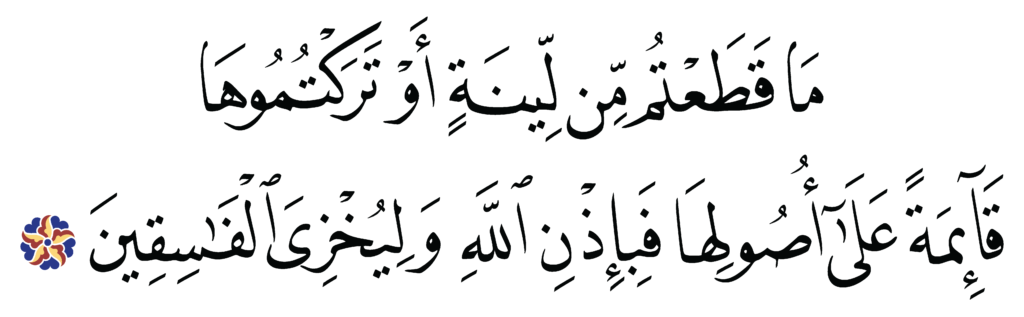 مَا قَطَعْتُم مِّن لِّينَةٍ أَوْ تَرَكْتُمُوهَا
قَآئِمَةً عَلَىٰٓ أُصُولِهَا فَبِإِذْنِ ٱللَّهِ وَلِيُخْزِىَ ٱلْفَـٰسِقِينَ